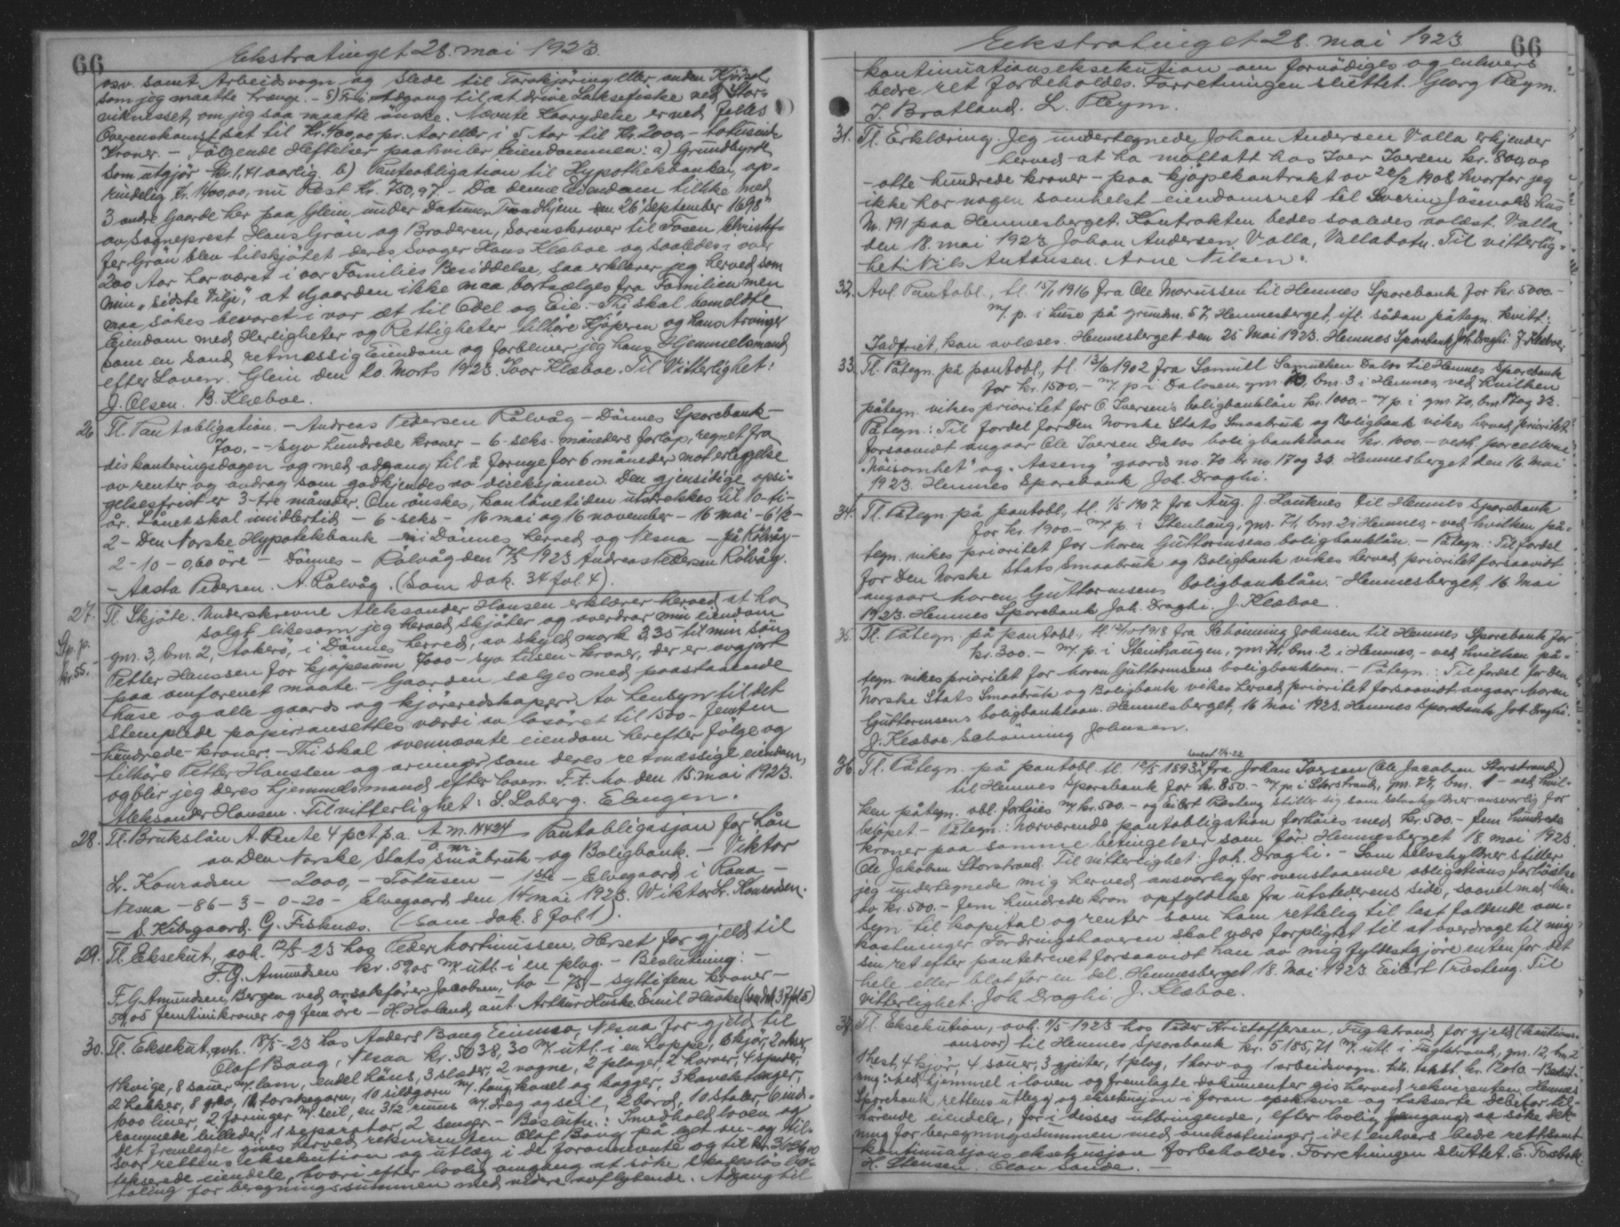 66
Ekstratinget 28. mai 1923
osv. samt Arbeidsvogn og Slede til Torvkjøring eller anden Kjørsel
som jeg maatte trænge. – 5) Fri Adgang til at drive Laksefiske ved Stor-
viknesset, om jeg saa maatte ønske. Nævnte Kaarydelse er ved fælles
Overenskomst sat til Kr. 400,00 pr. Aar eller i 5 Aar til Kr. 2000,- totusinde
Kroner. – Følgende Heftelser paahviler Eiendommen: a) Grundbyrde
som utgjør Kr. 1,41 aarlig b) Panteobligation til Hypothekbanken, op-
rindelig Kr. 1400,00, nu Rest Kr. 750,97. – Da denne Eiendom tillike med
3 andre Gaarde her paa Glein under Datum Trondhjem den 26 September 1698
av Sogneprest Hans Grøn og Broderen, Sorenskriver til Fosen Christof-
fer Grøn blev tilskjøtet deres Svoger Hans Klæboe og saaledes over
200 Aar har været i vor Families Besiddelse, saa erklærer jeg herved som
min "sidste Vilje", at Gaarden ikke maa bortsælges fra Familien men
maa søkes bevaret i vor Æt til Odel og Eie. – Thi skal bemeldte
Eiendom med Herligheter og Rettigheter tilhøre Kjøperen og hans Arvinger
som en sand retmæssig Eiendom og forbliver jeg hans Hjemmelsmand
efter Loven. Glein den 20. Marts 1923. Ivar Klæboe. Til Vitterlighet:
J. Olsen. B. Klæboe.
26. Tl. Pantobligation. – Andreas Pedersen Rølvåg – Dønnes Sparebank –
700.- – syv hundrede kroner – 6 – seks – måneders forløp, regnet fra
diskonteringsdagen og med adgang til å fornye for 6 måneder mot erleggelse
av renter og avdrag som godkjendes av direksjonen. Den gjensidige opsi-
gelsesfrist er 3 – tre måneder. Om ønskes, kan lånetiden utstrekkes til 10 – ti –
år. Lånet skal imidlertid – 6 – seks – 16 mai og 16 november – 16 mai – 6½ –
2 – Den Norske Hypotekbank – i Dønnes herred og Nesna – på Rølvåg –
2 – 10 – 0,60 øre – Dønnes – Rølvåg den 1923 Andreas Pedersen Rølvåg.
– Aasta Pedersen. A. Rølvåg. (Som dok. 34 fol 4).
27. Tl. Skjøte. Underskrevne Aleksander Hansen erklærer herved at ha
Gp. p.
kr. 55.-
solgt likesom jeg herved skjøter og overdrar min eiendom
gnr. 3, bnr. 2, Aakers, i Dønnes herred, av skyld mark 3,35 til min søn
Petter Hanssen for kjøpesum 7000 – syv tusen – kroner, der er avgjort
paa omforenet maate. – Gaarden sælges med paastaaende
huse og alle gaards- og kjøreredskaper. Av hensyn til det
stemplede papir ansettes værdi av løsøret til 1500 – femten
hundrede – kroner. – Thi skal ovennævnte eiendom herefter følge og
tilhøre Petter Hanssen og arvinger som deres retmæssige eiendom,
og blir jeg deres hjemmelsmand efter loven. F. t. ho den 15. mai 1923.
Aleksander Hansen. Til vitterlighet: S. Laberg. E. Langen.
28. Tl. Brukslån A. Rente 4 pct p.a. A. nr. N424 – Pantobligasjon for Lån
av Den Norske Stats Småbruk- og Boligbank. – Viktor
Kr. Konradsen – 2000,- – Totusen – 1ste – Elvegaard i Rana –
Nesna – 86 – 3 – 0-20 – Elvegaard den 14 mai 1923. Wiktor Kr. Konradsen.
– S. Kibsgaard. G. Fisknes. (Som dok. 8 fol 1).
29. Tl. Eksekut. avh. 12/5-23 hos Peder Martinussen, Herset for gjeld til
F.G. Amundsen kr. 59,05 m/ utl. i en plog. – Beslutning: –
F.G. Amundsen, Bergen ved ansakfører Jacobsen, Mo – 75 – syttifem kroner –
59,05 femtinikroner og fem øre – H. Holand, aut. Arthur Huske. Emil Huske (Som dok 37 fol 5)
30. Tl. Eksekut. avh. 18/5-23 hos Anders Bang Enimso, Nesna for gjeld til
Olaf Bang, Nesna kr. 5038,30 m/ utl. i en hoppe, 6 kjør, 2 okser,
1 kvige, 8 sauer m/ lam, endel høns, 3 slæder, 2 vogne, 2 ploger, 2 harver, 4 spader,
2 hakker, 8 , torskegarn, 10 sildgarn m/ tang kavel og kagger, 3 kavelstanger,
1000 liner, 2 føringer m/ seil, en 3½ rums m/ dreg og seil, 2 bord, 10 stoler, 6 ind-
rammede billeder, 1 separator, 2 senger – Beslutn.: I medhold loven og
det fremlagte gives herved rekvirenten Olaf Bang på egt an- og til-
svar rettens eksekution og utlæg i de forannævnte og til kr.
takserede eiendele, hvori efter lovlig omgang at søke skadesløs be-
taling for beregningssummen med videre avflytende. Adgang til
Ekstratinget 28. mai 1923
66
kontinuationseksekution om fornødiges og enhvers
bedre ret forbeholdes. Forretningen sluttet. Georg Pleym.
J. Bratland. L. Pleym.
31. Tl. Erklæring. Jeg undertegnede Johan Andersen Valla erkjender
herved at ha mottatt hos Iver Iversen kr. 800,00
– otte hundrede kroner – paa kjøpekontrakt av 22/2 1908 hvorfor jeg
ikke har nogen somhelst eiendomsret til Sverin Jäsvolds hus
Nr. 191 paa Hemnesberget. Kontrakten bedes saaledes avlæst. Valla
den 18. mai 1923 Johan Andersen Valla, Vallabotn. Til vitterlig-
het: Nils Antonsen. Arne Nilsen.
32. Avl. Pantobl., tl. 15/1 1916 fra Ole Marussen til Hemnes Sparebank for kr. 5000.-
m/ p. i huse på grundnr. 57, Hemnesberget, eft. sådan påtegn. Kvitt:
Indfriet, kan avlæses. Hemnesberget den 25 Mai 1923. Hemnes Sparebank Joh. Draghi. J. Klæboe.
33. Tl. Påtegn. på pantobl., tl. 13/6 1902 fra Samuel Samuelsen Dalos til Hemnes Sparebank
for kr. 1500,- m/ p. i Dalosen, gnr. 70, bnr. 3 i Hemnes, ved hvilken
påtegn. vikes prioritet for O. Iversens boligbanklån kr. 1000.- m/ p i gnr. 70, bnr. 17 og 32.
Påtegn.: Til fordel for Den Norske Stats Smaabruk og Boligbank vikes herved prioritet
forsaavidt angaar Ole Iversen Dalos boligbanklaan kr. 1000.- vedk. parcellene
"Nøisomhet" og "Aaseng" gaards no. 70 br. no. 17 og 32. Hemnesberget den 16 Mai
1923. Hemnes Sparebank Joh. Draghi.
34. Tl. Påtegn. på pantobl., tl. 1/5 1907 fra Aug. J. Hauknes til Hemnes Sparebank
for kr. 1900.- m/ p. i Stenhaug, gnr. 71, bnr. 2 i Hemnes, – ved hvilken på-
tegn. vikes prioritet for Maren Guttormsens boligbanklån. – Påtegn.: Til fordel
for Den Norske Stats Smaabruk og Boligbank vikes herved prioritet forsaavidt
angaar Maren Guttormsens boligbanklån. – Hemnesberget, 16 Mai
1923. Hemnes Sparebank Joh. Draghi. J. Klæboe.
35. Tl. Påtegn. på pantobl., tl. 1918 fra Schønning Johnsen til Hemnes Sparebank for
kr. 300.- m/ p. i Stenhaugen, gnr. 71, bnr. 2 i Hemnes, – ved hvilken på-
tegn. vikes prioritet for Maren Guttormsens boligbanklaan. – Påtegn.: Til fordel for Den
Norske Stats Smaabruk og Boligbank vikes herved prioritet forsaavidt angaar Maren
Guttormsens boligbanklaan. Hemnesberget, 16 Mai 1923. Hemnes Sparebank Joh. Draghi.
J. Klæboe. Schønning Johnsen.
36. Tl. Påtegn. på pantobl. tl. 12/5 1893 fra Johan Iversen (Ole Jacobsen Storstrand)
til Hemnes Sparebank for kr. 850.- m/ p. i Storstrand, gnr. 77, bnr. 1 – ved hvil-
ken påtegn. obl. forhøies m/ kr. 500.- og Eilert Præsteng stiller sig som selvskyldner ansvarlig for
beløpet. – Påtegn.: Nærværende pantobligation forhøies med kr. 500.- fem hundrede
kroner paa samme betingelser som før. Hemnesberget 18. mai 1923.
Ole Jakobsen Storstrand. Til vitterlighet: Joh. Draghi. – Som selvskyldner stiller
jeg undertegnede mig herved ansvarlig for ovenstaaende obligations forhøielse
av kr. 500.- fem hundrede kron opfyldelse fra utstederens side, saavel med hen-
syn til kapital og renter som ham rettelig til last faldende om-
kostninger. Fordringshaveren skal være forpligtet til at overdrage til mig
sin ret efter pantebrevet forsaavidt han av mig fyldestgjøres enten for det
hele eller blot for en del. Hemnesberget 18. Mai 1923 Eilert Præsteng. Til
vitterlighet: Joh Draghi J. Klæboe.
37. Tl. Eksekution, avh. 9/5 1923 hos Peder Kristoffersen, Fuglstrand, for gjeld (kautions-
ansvar) til Hemnes Sparebank kr. 5185,71 m/ utl. i Fuglstrand, gnr. 12, bnr. 2
1 hest, 4 kjør, 4 sauer, 3 gjeiter, 1 plog, 1 harv og 1 arbeidsvogn. tils. takst kr. 12010. – Beslut-
ning: Med hjemmel i loven og fremlagte dokumenter gis herved rekvirenten Hemnes
Sparebank rettens utlegg og eksekusjon i foran opskrevne og takserte debitor til-
hørende eiendele, for i disses utbringende, efter lovlig omgang, at søke dek-
ning for beregningssummen med omkostninger, idet enhvers bedre rett samt
kontinuasjonseksekusjon forbeholdes. Forretningen sluttet. E.
H. Stensen. Olav Sande. –